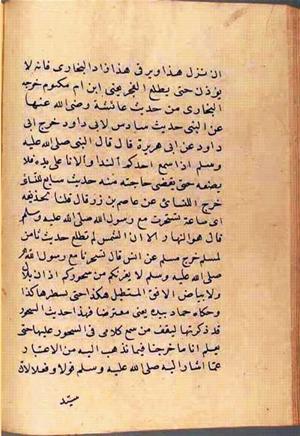 ان ننزل هذا ويرقى هذا زاد البخاری فانه لا
يؤذن حتى يطلع الفجر يعنى ابن ام مكتوم خرجه
البخاری من حديث عائشة رضى الله عنها
عن النبى حديث سادس لابى داود خرج ابى
داود عن ابى هريرة قال قال النبى صلى الله عليه
وسلم اذا سمع احدكم النداء والاناء على يده فلا
يضعه حتى يقضى حاجته منه حديث سابع للنسائى
خرج النسائى عن عاصم بن زر قال قلنا لحذيفة
اى ساعة تسحرت مع رسول الله صلى الله عليه وسلم
قال هو النهار الا ان الشمس لم تطلع حديث ثامن
لمسلم خرج مسلم عن انس قال تسحرنا مع رسول الله
صلى الله عليه وسلم لا يغرنكم من سحوركم اذان بلال
ولا بياض الافق المستطيل هكذا حتى يستطير هكذا
وحكاه حماد بيديه يعنى معترضا فهذا احاديث السحور
قد ذكرتها ليقف من سمع كلامى فى السحور عليها حتى
يعلم انا ما خرجنا فيما نذهب اليه من الاعتبار
عما اشار اليه صلى الله عليه وسلم قولا وفعلا لانه
سيد